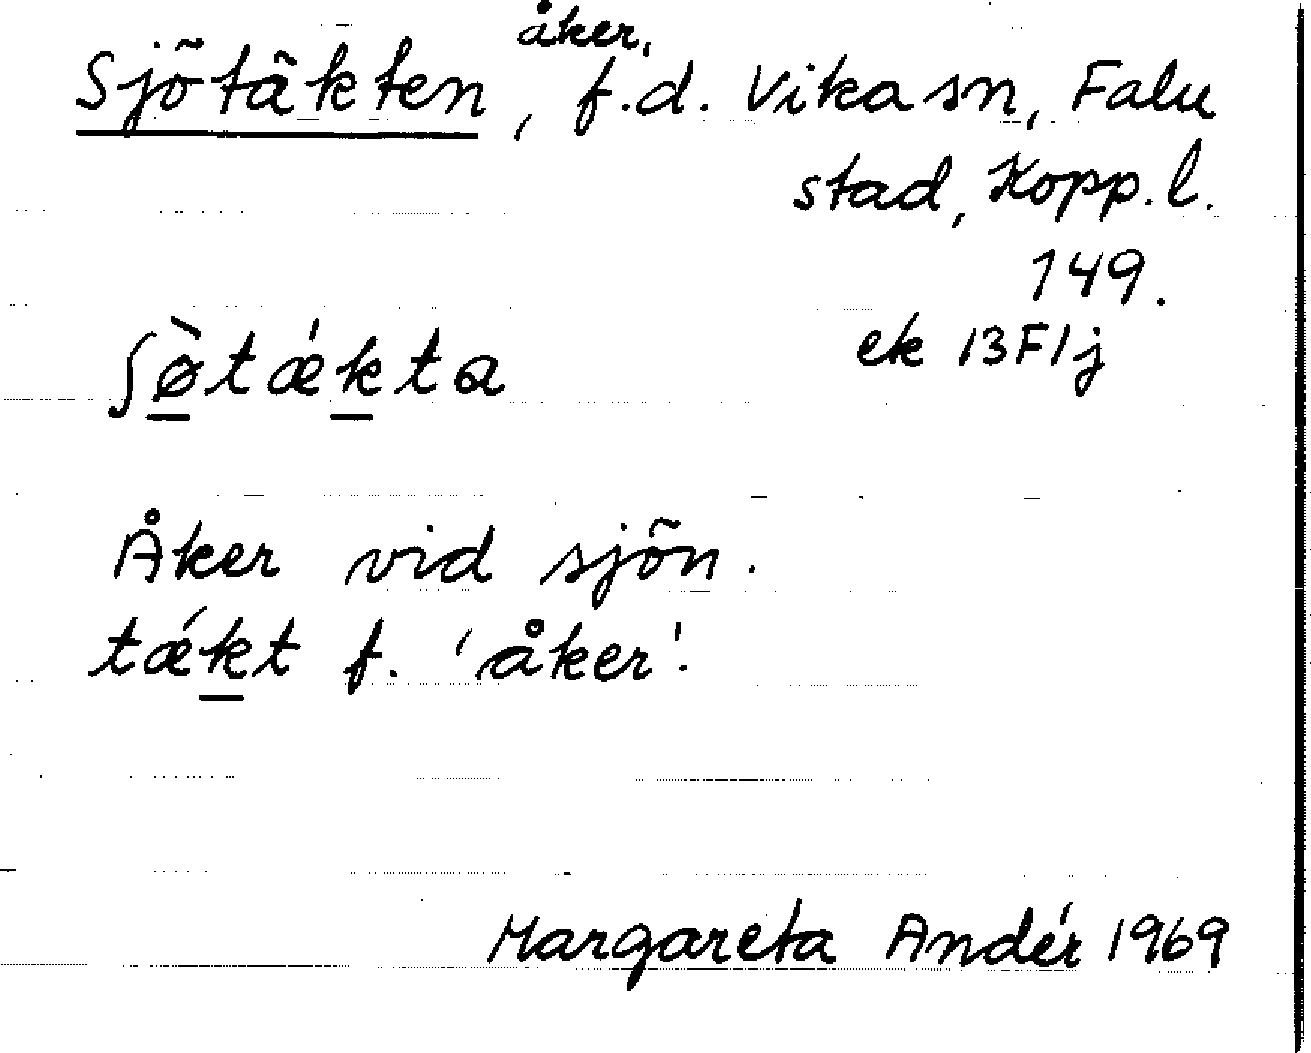 Sjötäkten, åker, f.d. Vika sn, Falu
stad, Kopp. l.
149.
ek 13F1j
ʃø̀tǽkta
Åker vid sjön.
tǽkt f. 'åker'.
Margareta Andér 1969